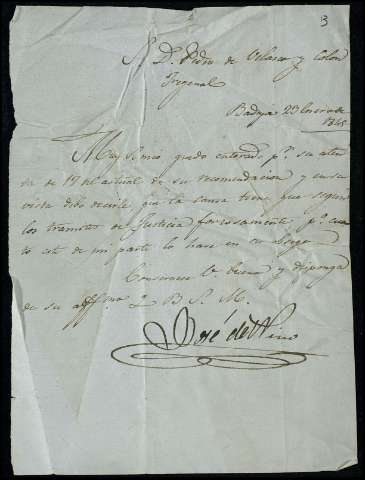 3
S. D. Pedro de Velasco y Colon
Fregenal
Badajoz 23 Enero de
1845
Muy S. mio quedo enterado pr. su aten
ta de 19 del actual de su recomendacion y en su
vista debo decirle que la causa tiene que seguir
los tramites de Justicia forzosamente pr. cuan
to este de mi parte lo haré en su
Conservese Ve. bueno y disponga
de su affmo. Q. B. S. M.
José de Pino